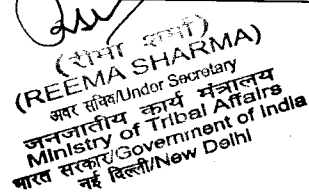 (रीमा शर्मा)
(REEMA SHARMA)
अवर सचिव/Undor Secretary
जनजातीय कार्य मंत्रालय
Ministry of Tribal Affairs
भारत सरकार/Government of India
नई दिल्ली/New Delhi